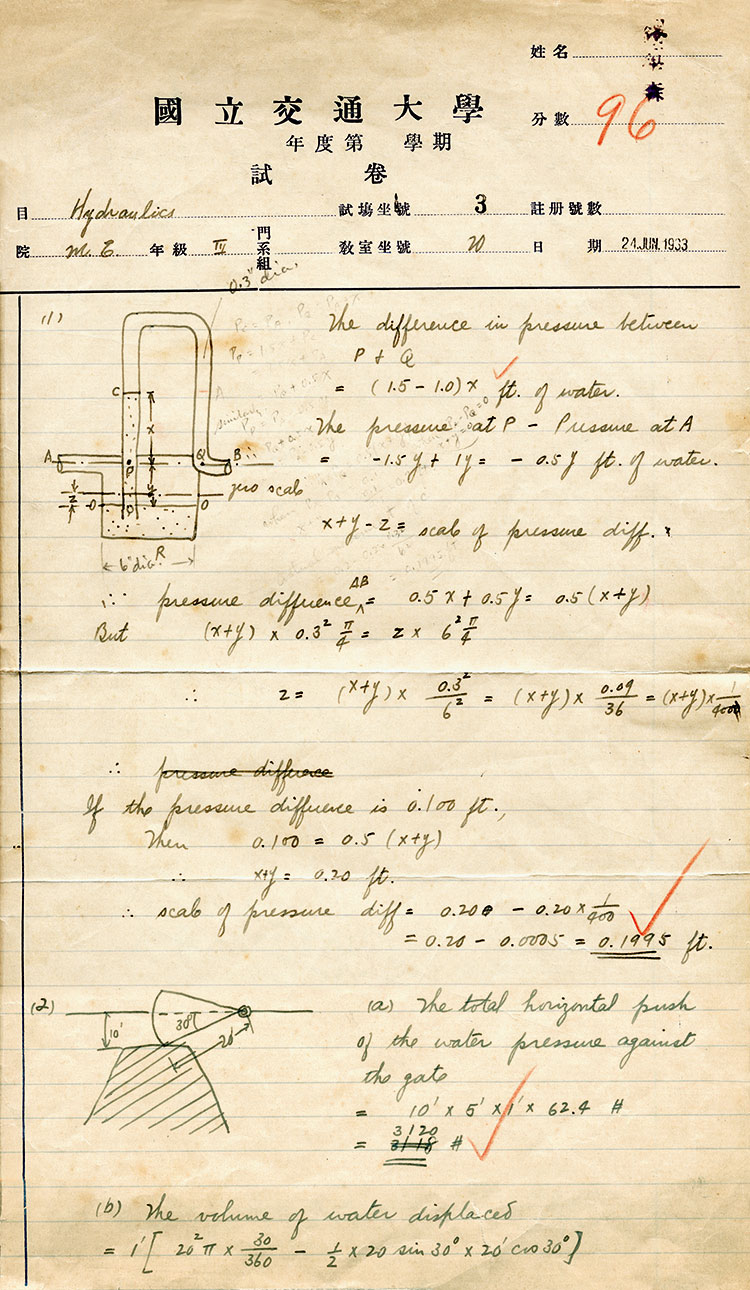 姓名
國立交通大學
分數 96
年度第 學期
試卷
目 Hydraulics 試場坐號 3 註册號數
院 M.E. 年級 IV 門系組 教室坐號 20 日期 24.JUN.1933
0.3" dia.
(1)
The difference in pressure between
P & Q
= (1.5 - 1.0)x ft. of water.
The pressure at P - Pressure at A
= -1.5y + 1y = -0.5y ft. of water.
C
x
A
P
Q
B
zero scale
y
z
O
O
D
6" dia.
R
x+y-z = scale of pressure diff.
∴ pressure difference AB = 0.5x + 0.5y = 0.5(x+y)
But (x+y) × 0.3² π/4 = z × 6² π/4
∴ z = (x+y) × 0.3²/6² = (x+y) × 0.09/36 = (x+y) × 1/400
∴ pressure difference
If the pressure difference is 0.100 ft.,
Then 0.100 = 0.5 (x+y)
∴ x+y = 0.20 ft.
∴ scale of pressure diff = 0.200 - 0.20 × 1/400
= 0.20 - 0.0005 = 0.1995 ft.
(2)
10'
30°
20'
(a) The total horizontal push
of the water pressure against
the gate
= 10' × 5' × 1' × 62.4 #
3120
= 3118 #
(b) The volume of water displaced
= 1' [ 20² π × 30/360 - 1/2 × 20 sin 30° × 20' cos 30° ]